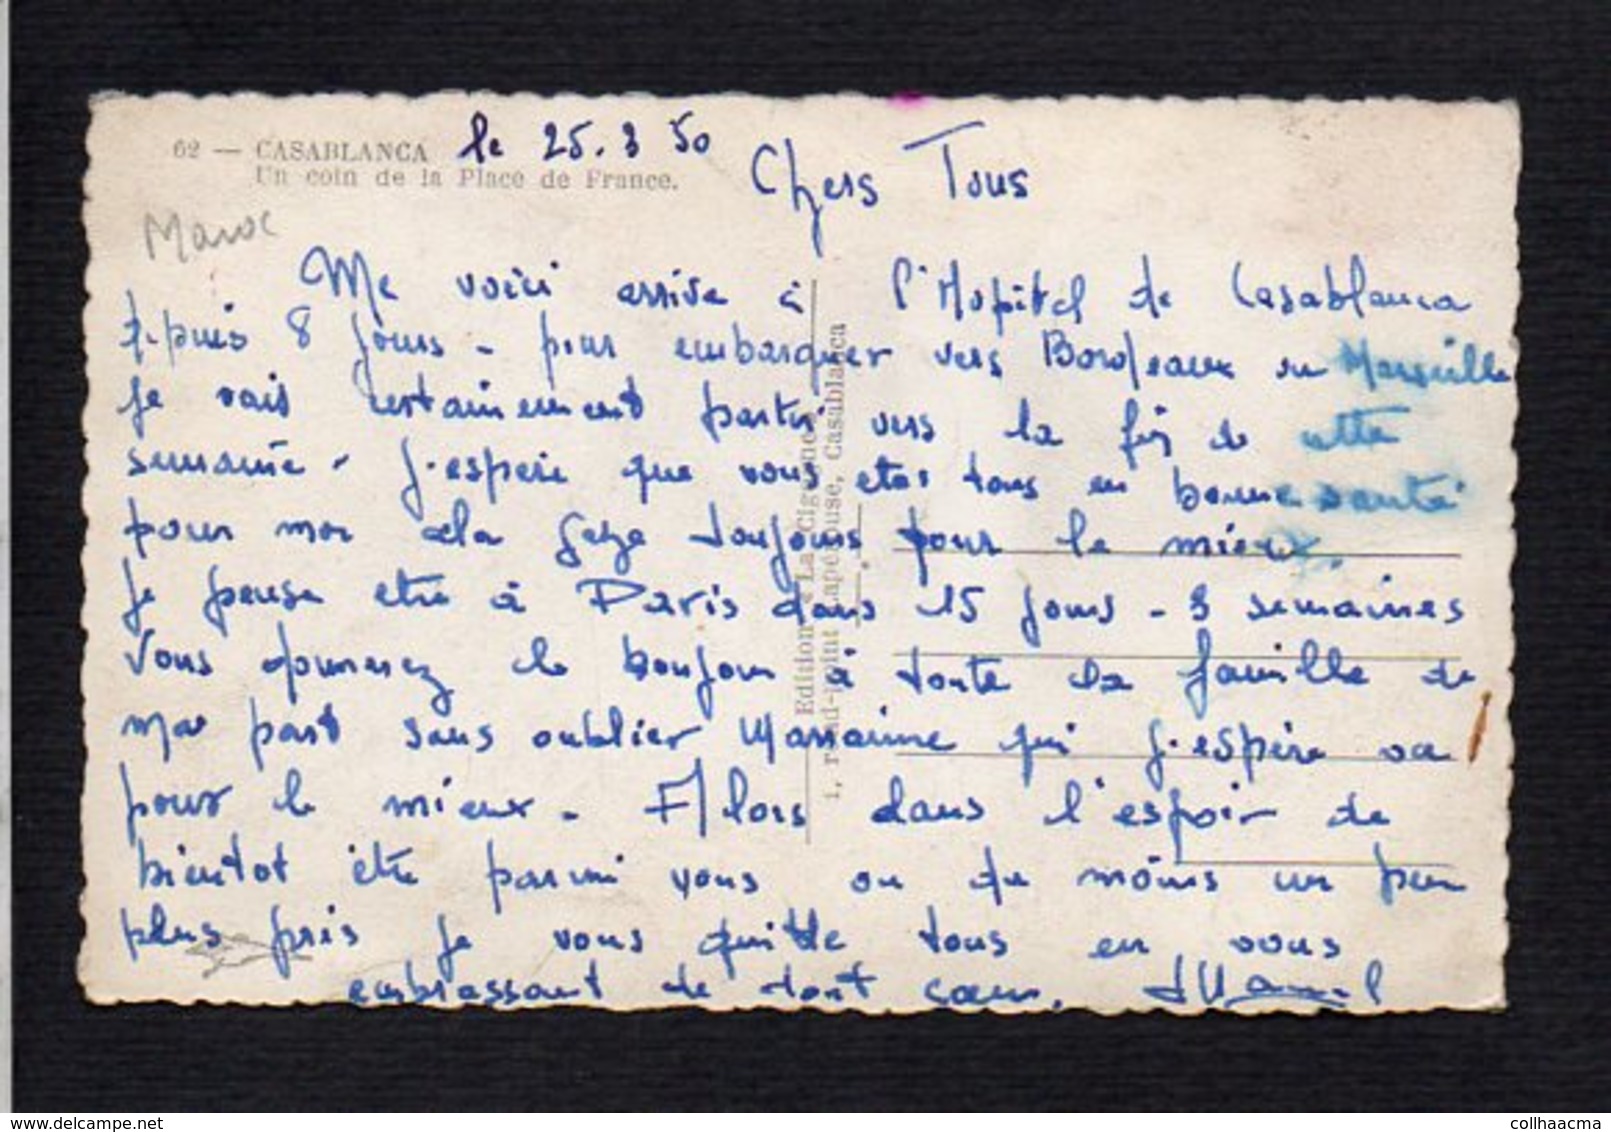 62 — CASABLANCA
Un coin de la Place de France.
le 25.3 50
Chers Tous
Maroc
Me voici arrive à l'Hopital de Casablanca
depuis 8 jours - pour embarquer vers Bordeaux ou Marseille
je vais certainement partir vers la fin de cette
semaine. J'espere que vous etes tous en bonne santé
pour moi cela gaze toujours pour le mieux.
Je pense etre à Paris dans 15 jours - 3 semaines
Vous donnerez le bonjour à toute la famille de
ma part sans oublier Marraine qui j'espère va
pour le mieux - Alors dans l'espoir de
bientot être parmi vous ou du moins un peu
plus près je vous quitte tous en vous
embrassant de tout cœur.
Edition « La Cigogne »
1, rond-point Lapérouse, Casablanca
delcampe.net
collhaacma